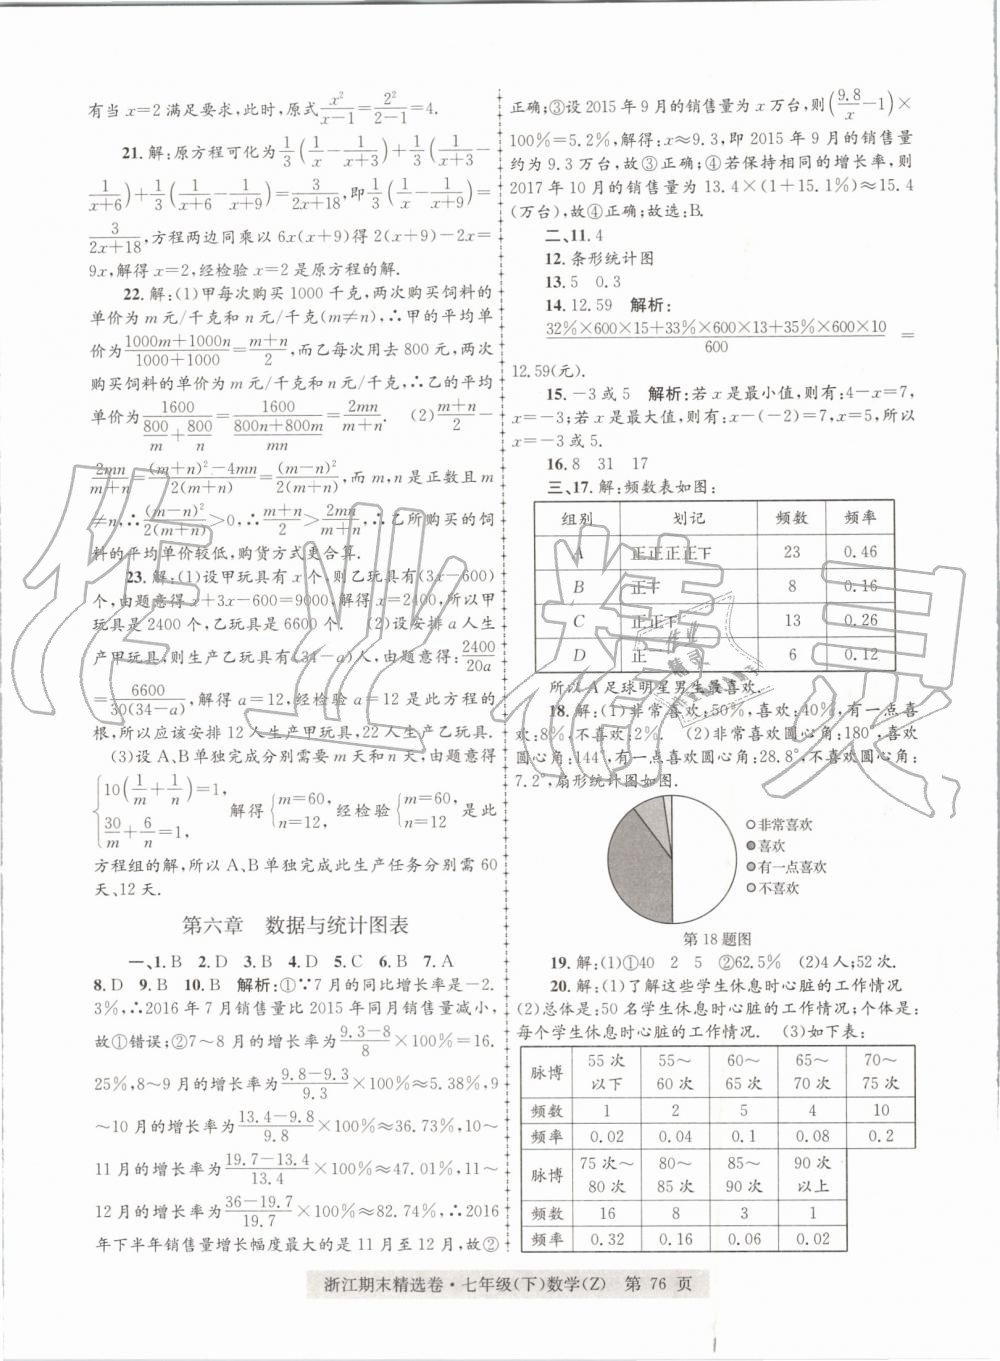 有当 x=2 满足要求,此时,原式 x²/(x−1)=2²/(2−1)=4.
21. 解:原方程可化为 1/3(1/x−1/(x+3))+1/3(1/(x+3)−
1/(x+6))+1/3(1/(x+6)−1/(x+9))=3/(2x+18),即 1/3(1/x−1/(x+9))=
3/(2x+18),方程两边同乘以 6x(x+9)得 2(x+9)−2x=
9x,解得 x=2,经检验 x=2 是原方程的解.
22. 解:(1)甲每次购买 1000 千克,两次购买饲料的
单价为 m 元/千克和 n 元/千克(m≠n),∴甲的平均单
价为(1000m+1000n)/(1000+1000)=(m+n)/2,而乙每次用去 800 元,两次
购买饲料的单价为 m 元/千克和 n 元/千克,∴乙的平均
单价为 1600/(800/m+800/n)=1600/((800n+800m)/mn)=2mn/(m+n). (2)(m+n)/2−
2mn/(m+n)=((m+n)²−4mn)/(2(m+n))=(m−n)²/(2(m+n)),而 m,n 是正数且 m
≠n,∴(m−n)²/(2(m+n))>0,∴(m+n)/2>2mn/(m+n),∴乙所购买的饲
料的平均单价较低,购货方式更合算.
23. 解:(1)设甲玩具有 x 个,则乙玩具有(3x−600)
个,由题意得 x+3x−600=9000,解得 x=2400,所以甲
玩具是 2400 个,乙玩具是 6600 个. (2)设安排 a 人生
产甲玩具,则生产乙玩具有(34−a)人,由题意得:2400/20a
=6600/(30(34−a)),解得 a=12,经检验 a=12 是此方程的
根,所以应该安排 12 人生产甲玩具,22 人生产乙玩具.
(3)设 A、B 单独完成分别需要 m 天和 n 天,由题意得
{10(1/m+1/n)=1, 30/m+6/n=1, 解得{m=60, n=12, 经检验{m=60, n=12 是此
方程组的解,所以 A、B 单独完成此生产任务分别需 60
天、12 天.
第六章 数据与统计图表
一、1. B 2. D 3. B 4. D 5. C 6. B 7. A
8. D 9. B 10. B 解析:①∵7 月的同比增长率是−2.
3%,∴2016 年 7 月销售量比 2015 年同月销售量减小,
故①错误;②7~8 月的增长率为(9.3−8)/8×100%=16.
25%,8~9 月的增长率为(9.8−9.3)/9.3×100%≈5.38%,9
~10 月的增长率为(13.4−9.8)/9.8×100%≈36.73%,10~
11 月的增长率为(19.7−13.4)/13.4×100%≈47.01%,11~
12 月的增长率为(36−19.7)/19.7×100%≈82.74%,∴2016
年下半年销售量增长幅度最大的是 11 月至 12 月,故②
正确;③设 2015 年 9 月的销售量为 x 万台,则(9.8/x−1)×
100%=5.2%,解得:x≈9.3,即 2015 年 9 月的销售量
约为 9.3 万台,故③正确;④若保持相同的增长率,则
2017 年 10 月的销售量为 13.4×(1+15.1%)≈15.4
(万台),故④正确;故选:B.
二、11. 4
12. 条形统计图
13. 5 0.3
14. 12.59 解析:
(32%×600×15+33%×600×13+35%×600×10)/600=
12.59(元).
15. −3 或 5 解析:若 x 是最小值,则有:4−x=7,
x=−3;若 x 是最大值,则有:x−(−2)=7,x=5,所以
x=−3 或 5.
16. 8 31 17
三、17. 解:频数表如图:
组别 划记 频数 频率
A 正正正正下 23 0.46
B 正下 8 0.16
C 正正下 13 0.26
D 正一 6 0.12
所以 A 足球明星男生最喜欢.
18. 解:(1)非常喜欢:50%,喜欢:40%,有一点喜
欢:8%,不喜欢:2%. (2)非常喜欢圆心角:180°,喜欢
圆心角:144°,有一点喜欢圆心角:28.8°,不喜欢圆心角:
7.2°,扇形统计图如图.
非常喜欢
喜欢
有一点喜欢
不喜欢
第 18 题图
19. 解:(1)①40 2 5 ②62.5% (2)4 人;52 次.
20. 解:(1)了解这些学生休息时心脏的工作情况
(2)总体是:50 名学生休息时心脏的工作情况;个体是:
每个学生休息时心脏的工作情况. (3)如下表:
脉搏 55 次以下 55~60 次 60~65 次 65~70 次 70~75 次
频数 1 2 5 4 10
频率 0.02 0.04 0.1 0.08 0.2
脉搏 75 次~80 次 80~85 次 85~90 次 90 次以上
频数 16 8 3 1
频率 0.32 0.16 0.06 0.02
浙江期末精选卷·七年级(下)数学(Z) 第 76 页
作业精灵